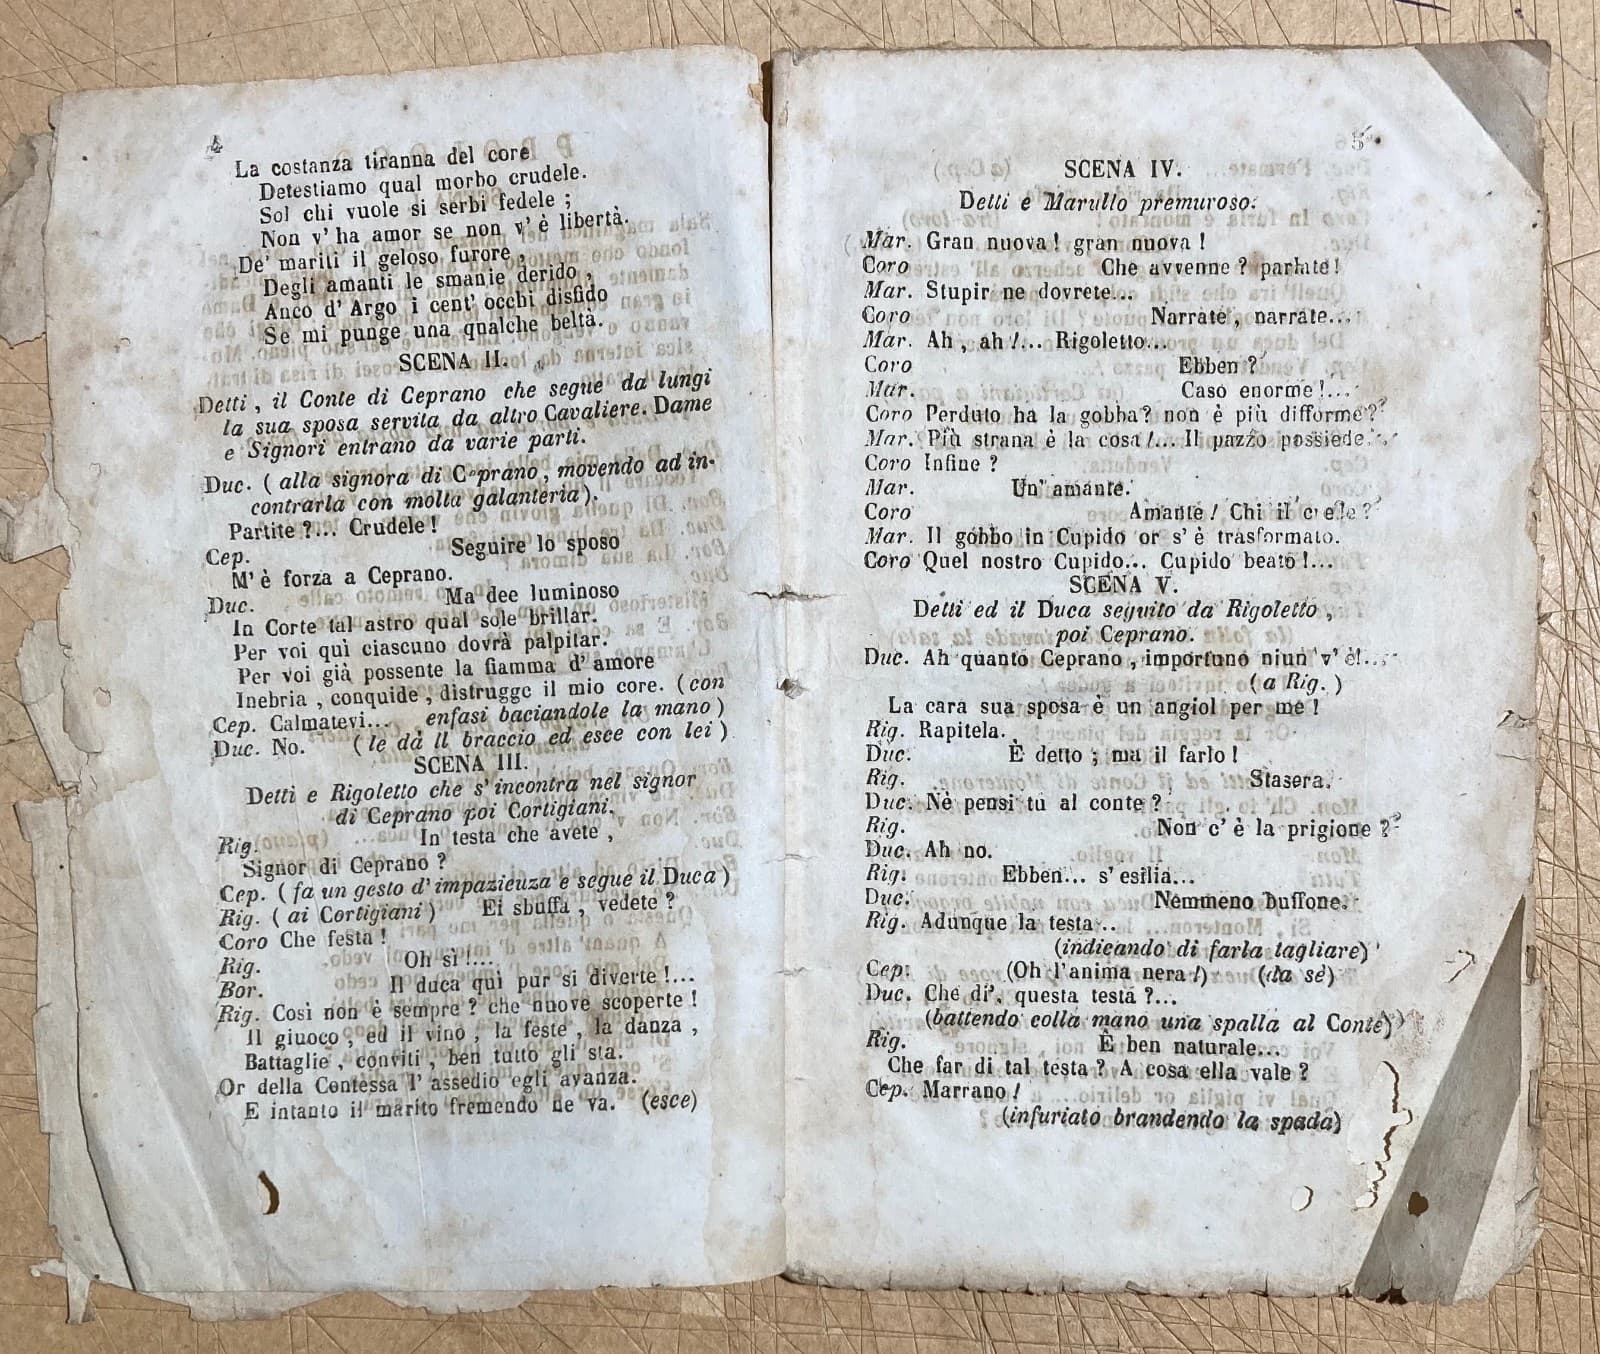 4
La costanza tiranna del core
Detestiamo qual morbo crudele.
Sol chi vuole si serbi fedele ;
Non v' ha amor se non v' è libertà.
De' mariti il geloso furore ,
Degli amanti le smanie derido ,
Anco d' Argo i cent' occhi disfido
Se mi punge una qualche beltà.
SCENA II.
Detti , il Conte di Ceprano che segue da lungi
la sua sposa servita da altro Cavaliere. Dame
e Signori entrano da varie parti.
Duc. ( alla signora di Ceprano , movendo ad in-
contrarla con molta galanteria ).
Partite ?... Crudele !
Cep. Seguire lo sposo
M' è forza a Ceprano.
Duc. Ma dee luminoso
In Corte tal astro qual sole brillar.
Per voi quì ciascuno dovrà palpitar.
Per voi già possente la fiamma d' amore
Inebria , conquide , distrugge il mio core. (con
Cep. Calmatevi... enfasi baciandole la mano )
Duc. No. ( le dà il braccio ed esce con lei )
SCENA III.
Detti e Rigoletto che s' incontra nel signor
di Ceprano poi Cortigiani.
Rig. In testa che avete ,
Signor di Ceprano ?
Cep. ( fa un gesto d' impazienza e segue il Duca )
Rig. ( ai Cortigiani ) Ei sbuffa , vedete ?
Coro Che festa !
Rig. Oh sì !...
Bor. Il duca quì pur si diverte !...
Rig. Così non è sempre ? che nuove scoperte !
Il giuoco , ed il vino , la feste , la danza ,
Battaglie , conviti , ben tutto gli sta.
Or della Contessa l' assedio egli avanza.
E intanto il marito fremendo ne va. (esce)
5
SCENA IV.
Detti e Marullo premuroso.
Mar. Gran nuova ! gran nuova !
Coro Che avvenne ? parlate !
Mar. Stupir ne dovrete...
Coro Narrate , narrate...
Mar. Ah , ah !... Rigoletto...
Coro Ebben ?
Mar. Caso enorme !...
Coro Perduto ha la gobba ? non è più difforme ?
Mar. Più strana è la cosa !... Il pazzo possiede...
Coro Infine ?
Mar. Un' amante.
Coro Amante ! Chi il crede ?
Mar. Il gobbo in Cupido or s' è trasformato.
Coro Quel nostro Cupido... Cupido beato !...
SCENA V.
Detti ed il Duca seguito da Rigoletto ,
poi Ceprano.
Duc. Ah quanto Ceprano , importuno niun v' è!...
( a Rig. )
La cara sua sposa è un angiol per me !
Rig. Rapitela.
Duc. È detto ; ma il farlo !
Rig. Stasera.
Duc. Nè pensi tu al conte ?
Rig. Non c' è la prigione ?
Duc. Ah no.
Rig. Ebben... s' esilia...
Duc. Nemmeno buffone.
Rig. Adunque la testa...
(indicando di farla tagliare)
Cep. (Oh l'anima nera !) (da sè)
Duc. Che di', questa testa ?...
(battendo colla mano una spalla al Conte)
Rig. È ben naturale...
Che far di tal testa ? A cosa ella vale ?
Cep. Marrano !
(infuriato brandendo la spada)